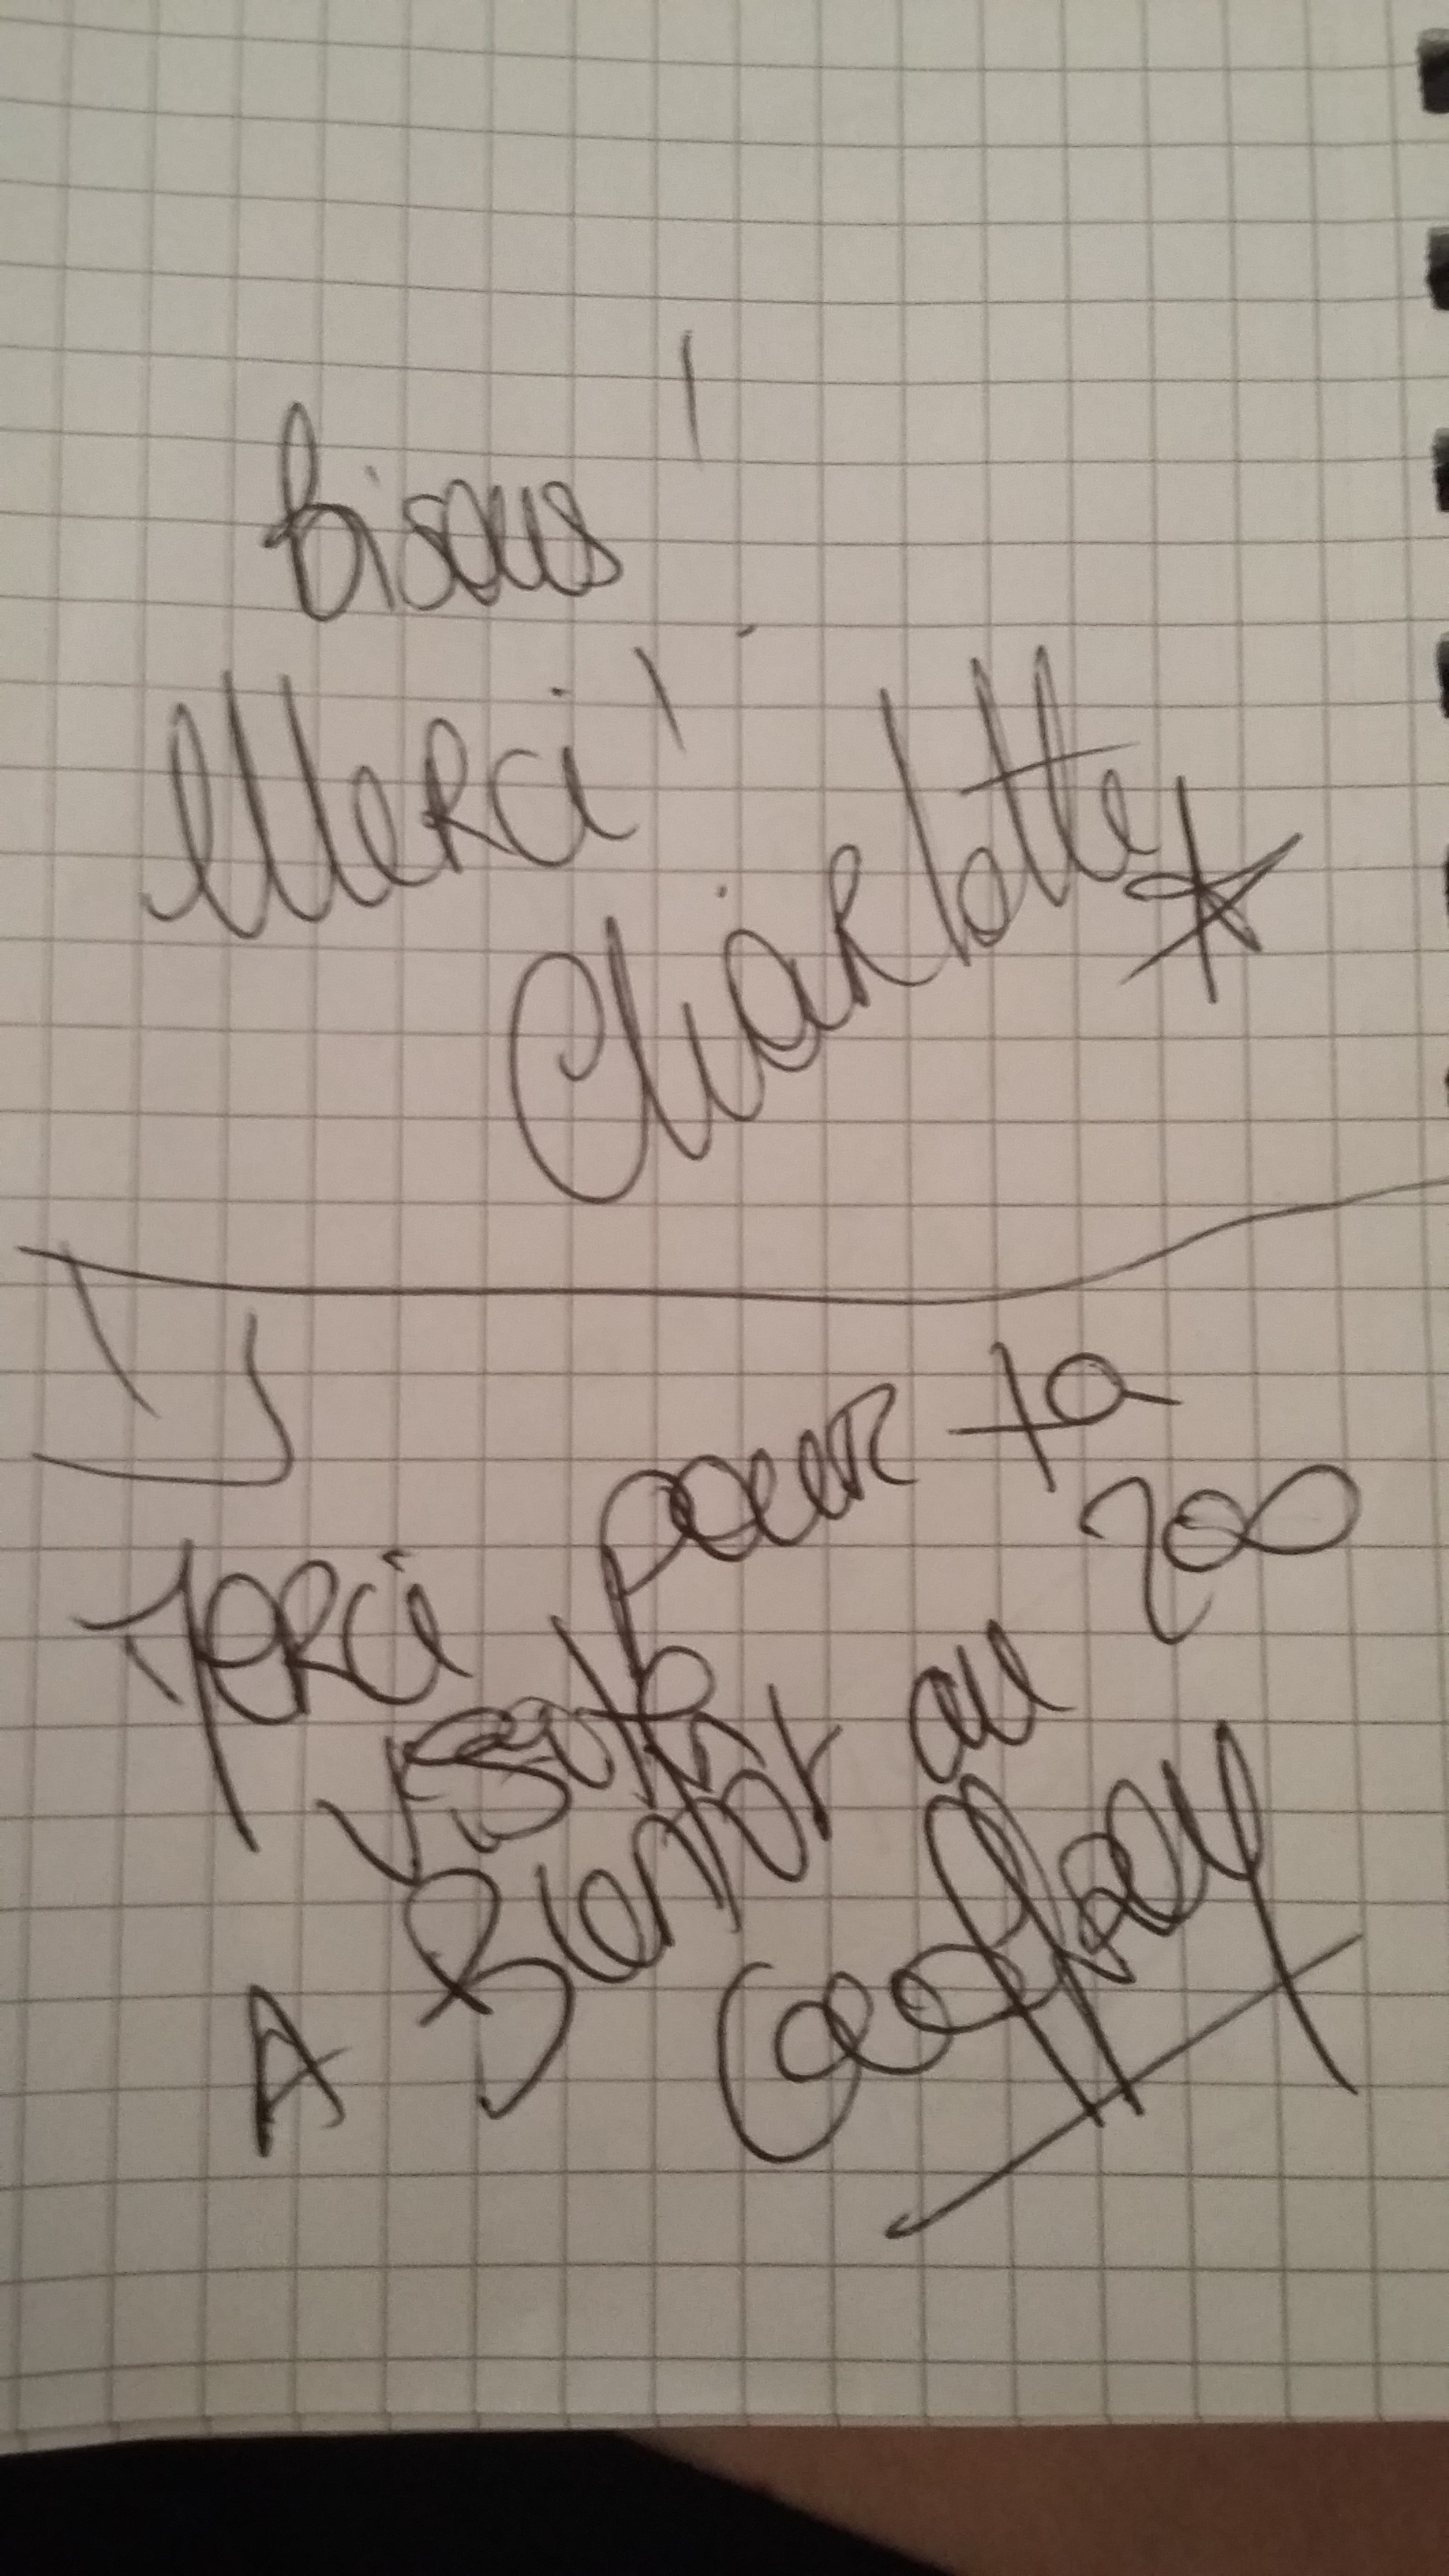 bisous !
Merci !
Charlotte
Merci pour ta
visite
A Bientot au zoo
Geoffrey